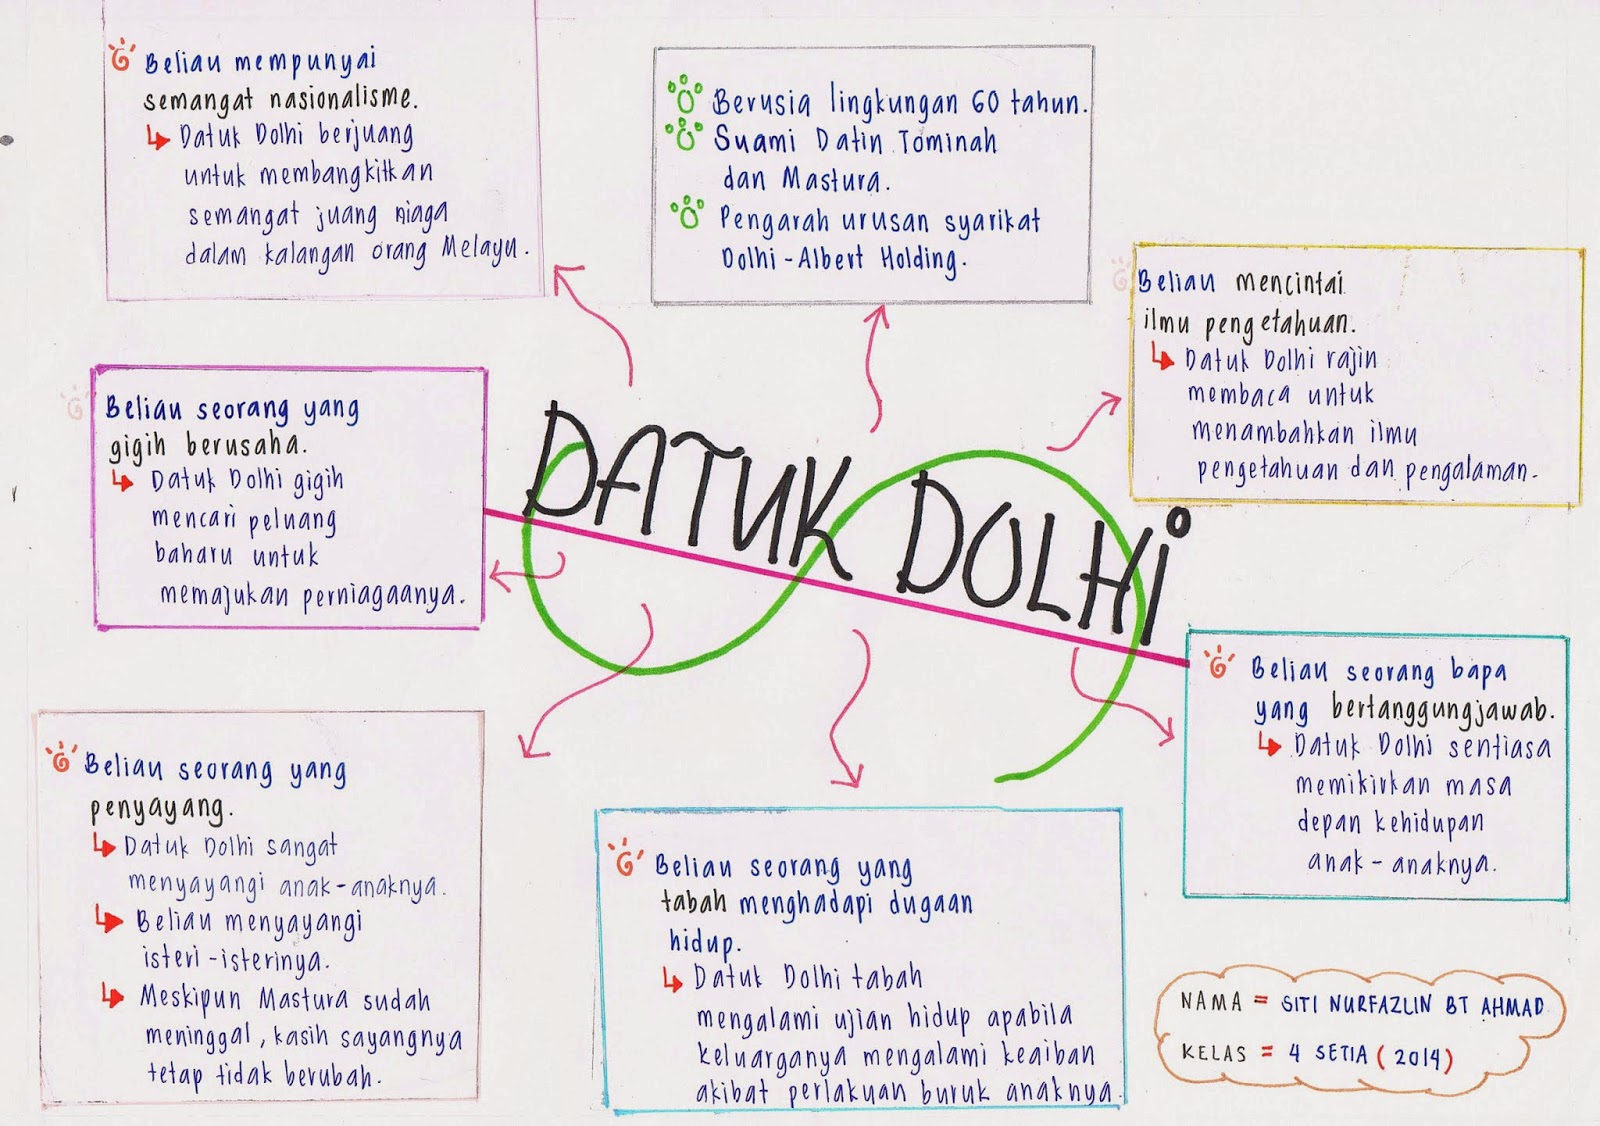 Beliau mempunyai
semangat nasionalisme.
Datuk Dolhi berjuang
untuk membangkitkan
semangat juang niaga
dalam kalangan orang Melayu.
Berusia lingkungan 60 tahun.
Suami Datin Tominah
dan Mastura.
Pengarah urusan syarikat
Dolhi-Albert Holding.
Beliau mencintai
ilmu pengetahuan.
Datuk Dolhi rajin
membaca untuk
menambahkan ilmu
pengetahuan dan pengalaman.
Beliau seorang yang
gigih berusaha.
Datuk Dolhi gigih
mencari peluang
baharu untuk
memajukan perniagaanya.
DATUK DOLHi
Beliau seorang bapa
yang bertanggungjawab.
Datuk Dolhi sentiasa
memikirkan masa
depan kehidupan
anak-anaknya.
Beliau seorang yang
penyayang.
Datuk Dolhi sangat
menyayangi anak-anaknya.
Beliau menyayangi
isteri-isterinya.
Meskipun Mastura sudah
meninggal, kasih sayangnya
tetap tidak berubah.
Beliau seorang yang
tabah menghadapi dugaan
hidup.
Datuk Dolhi tabah
mengalami ujian hidup apabila
keluarganya mengalami keaiban
akibat perlakuan buruk anaknya.
NAMA = SITI NURFAZLIN BT AHMAD
KELAS = 4 SETIA (2014)